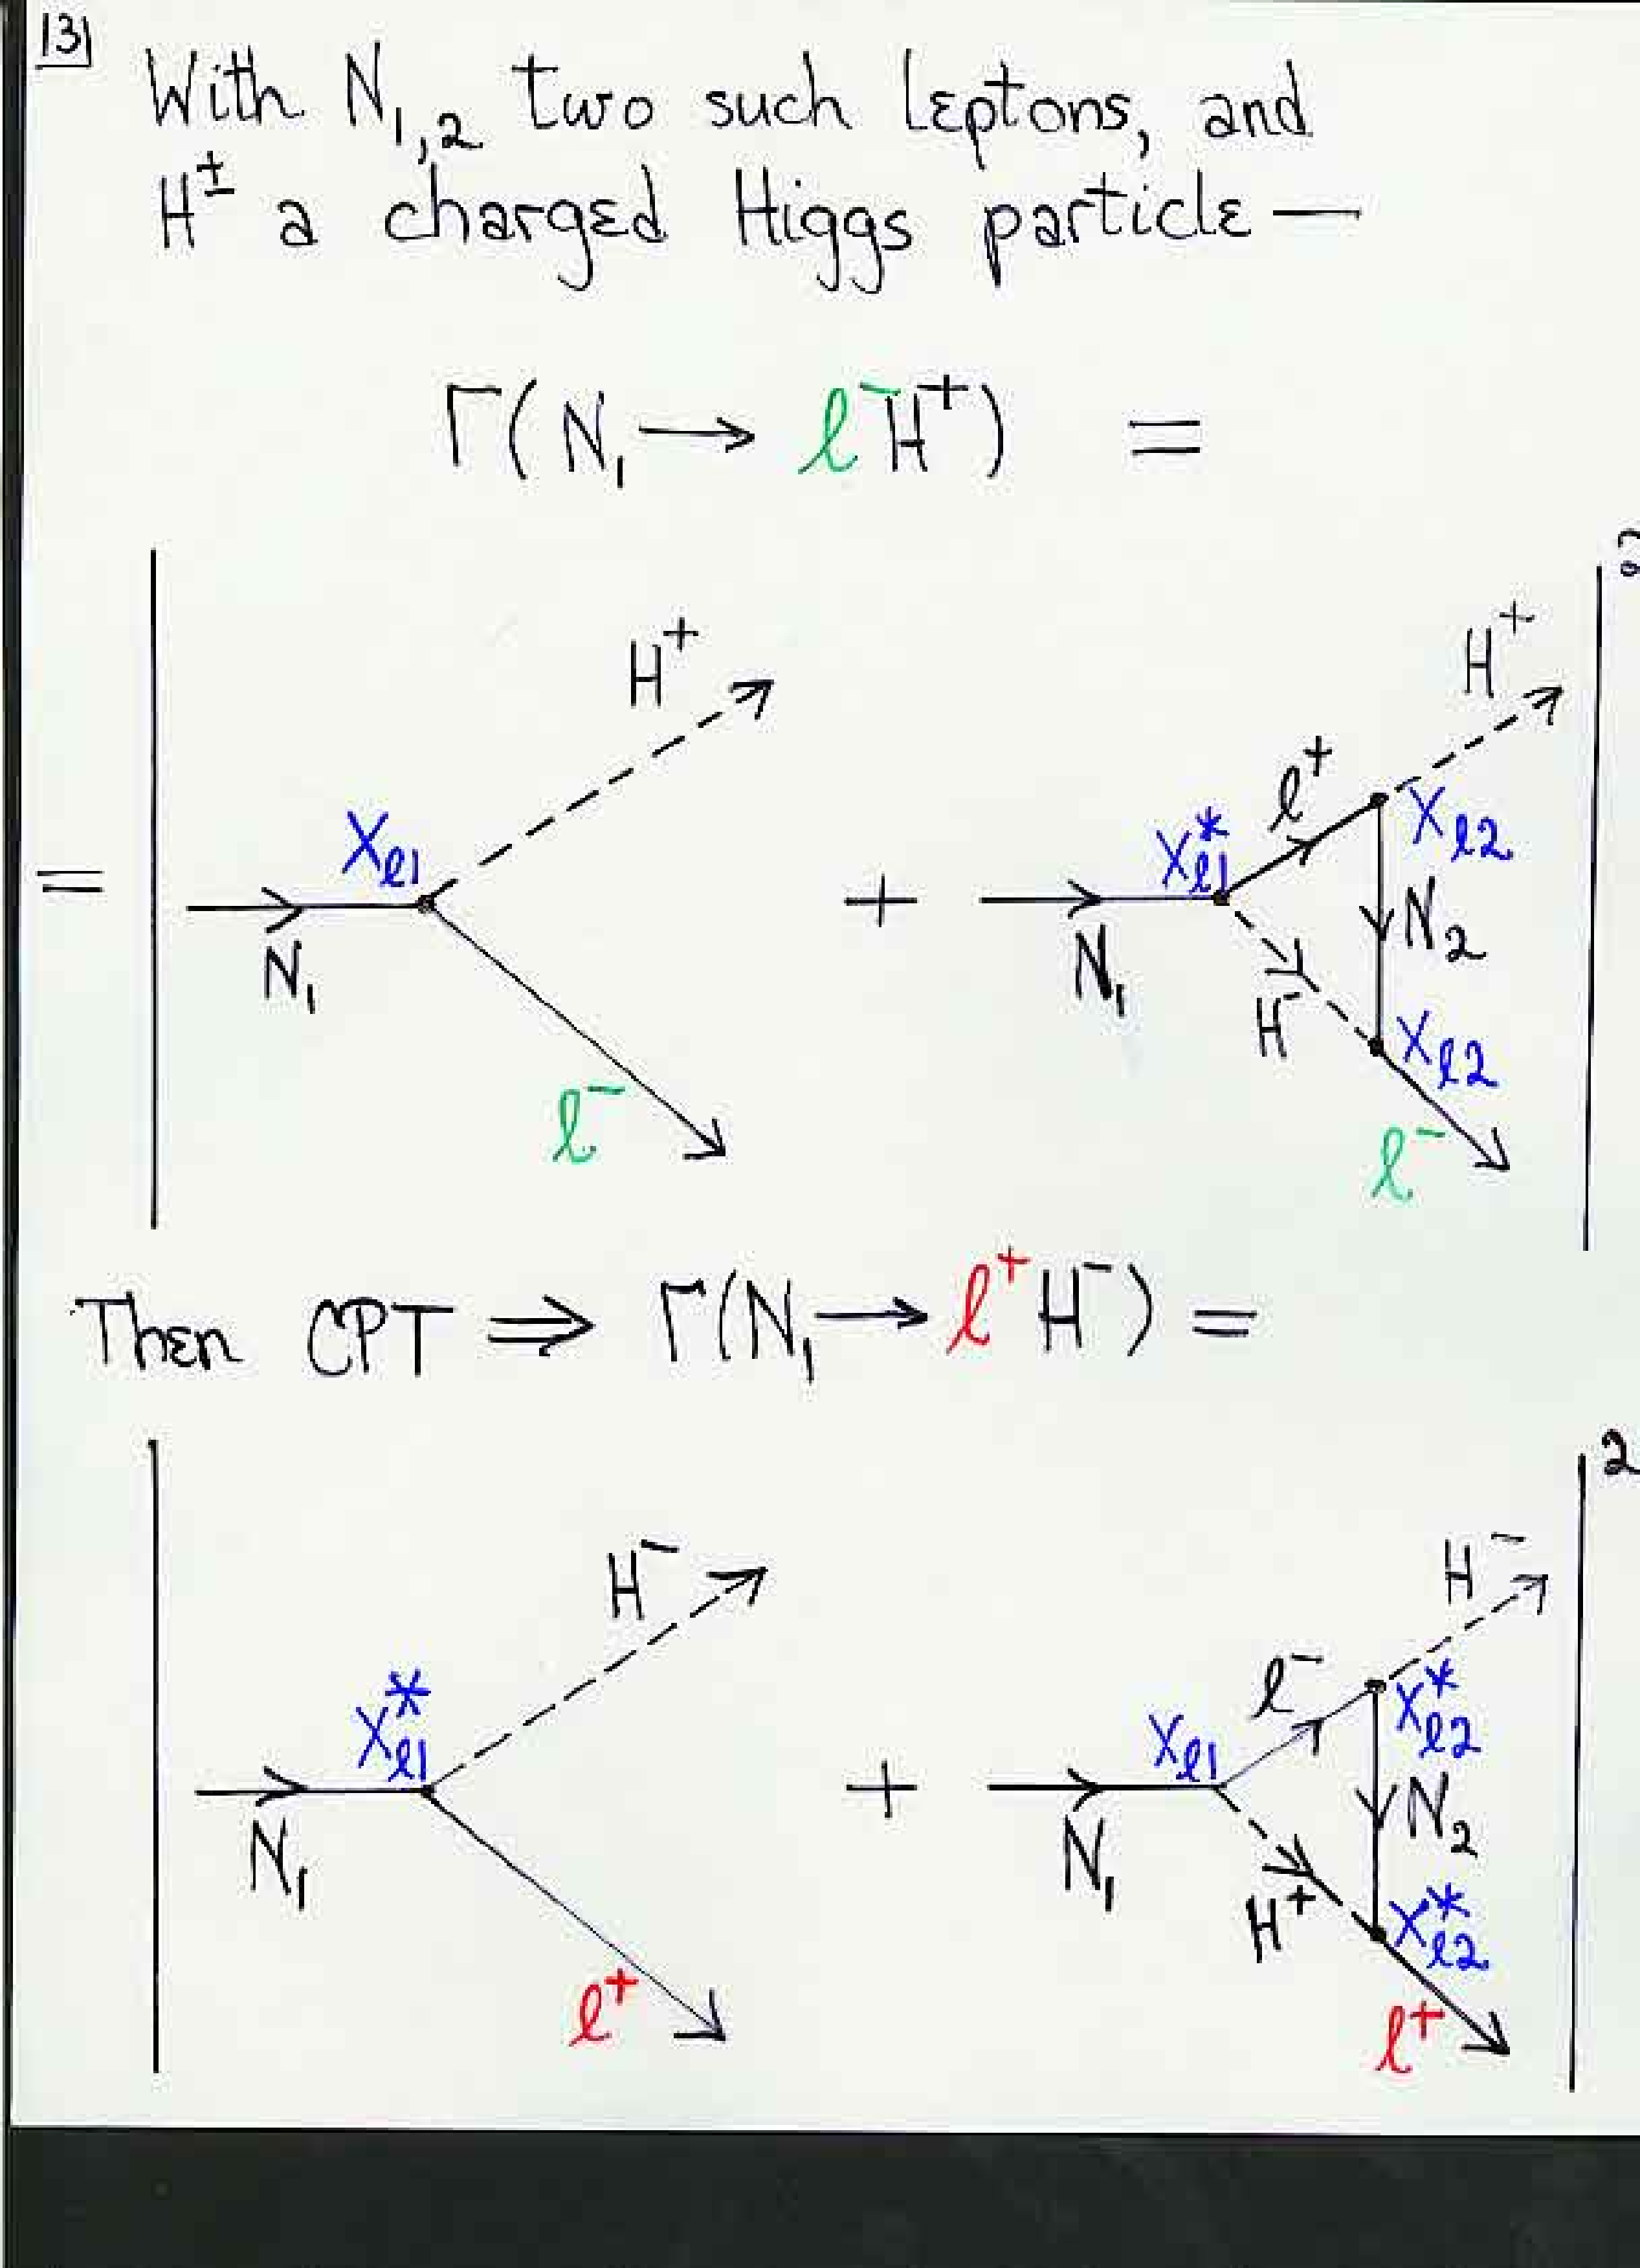 131
With N₁,₂ two such leptons, and
H± a charged Higgs particle —
Γ(N₁ → ℓ⁻H⁺) =
2
H⁺ H⁺
ℓ⁺
= X_ℓ1 + X*_ℓ1 X_ℓ2
N₁ N₁ N₂
H⁻ X_ℓ2
ℓ⁻ ℓ⁻
Then CPT ⇒ Γ(N₁ → ℓ⁺H⁻) =
2
H⁻ H⁻
ℓ⁻
X*_ℓ1 + X_ℓ1 X*_ℓ2
N₁ N₁ N₂
H⁺ X*_ℓ2
ℓ⁺ ℓ⁺